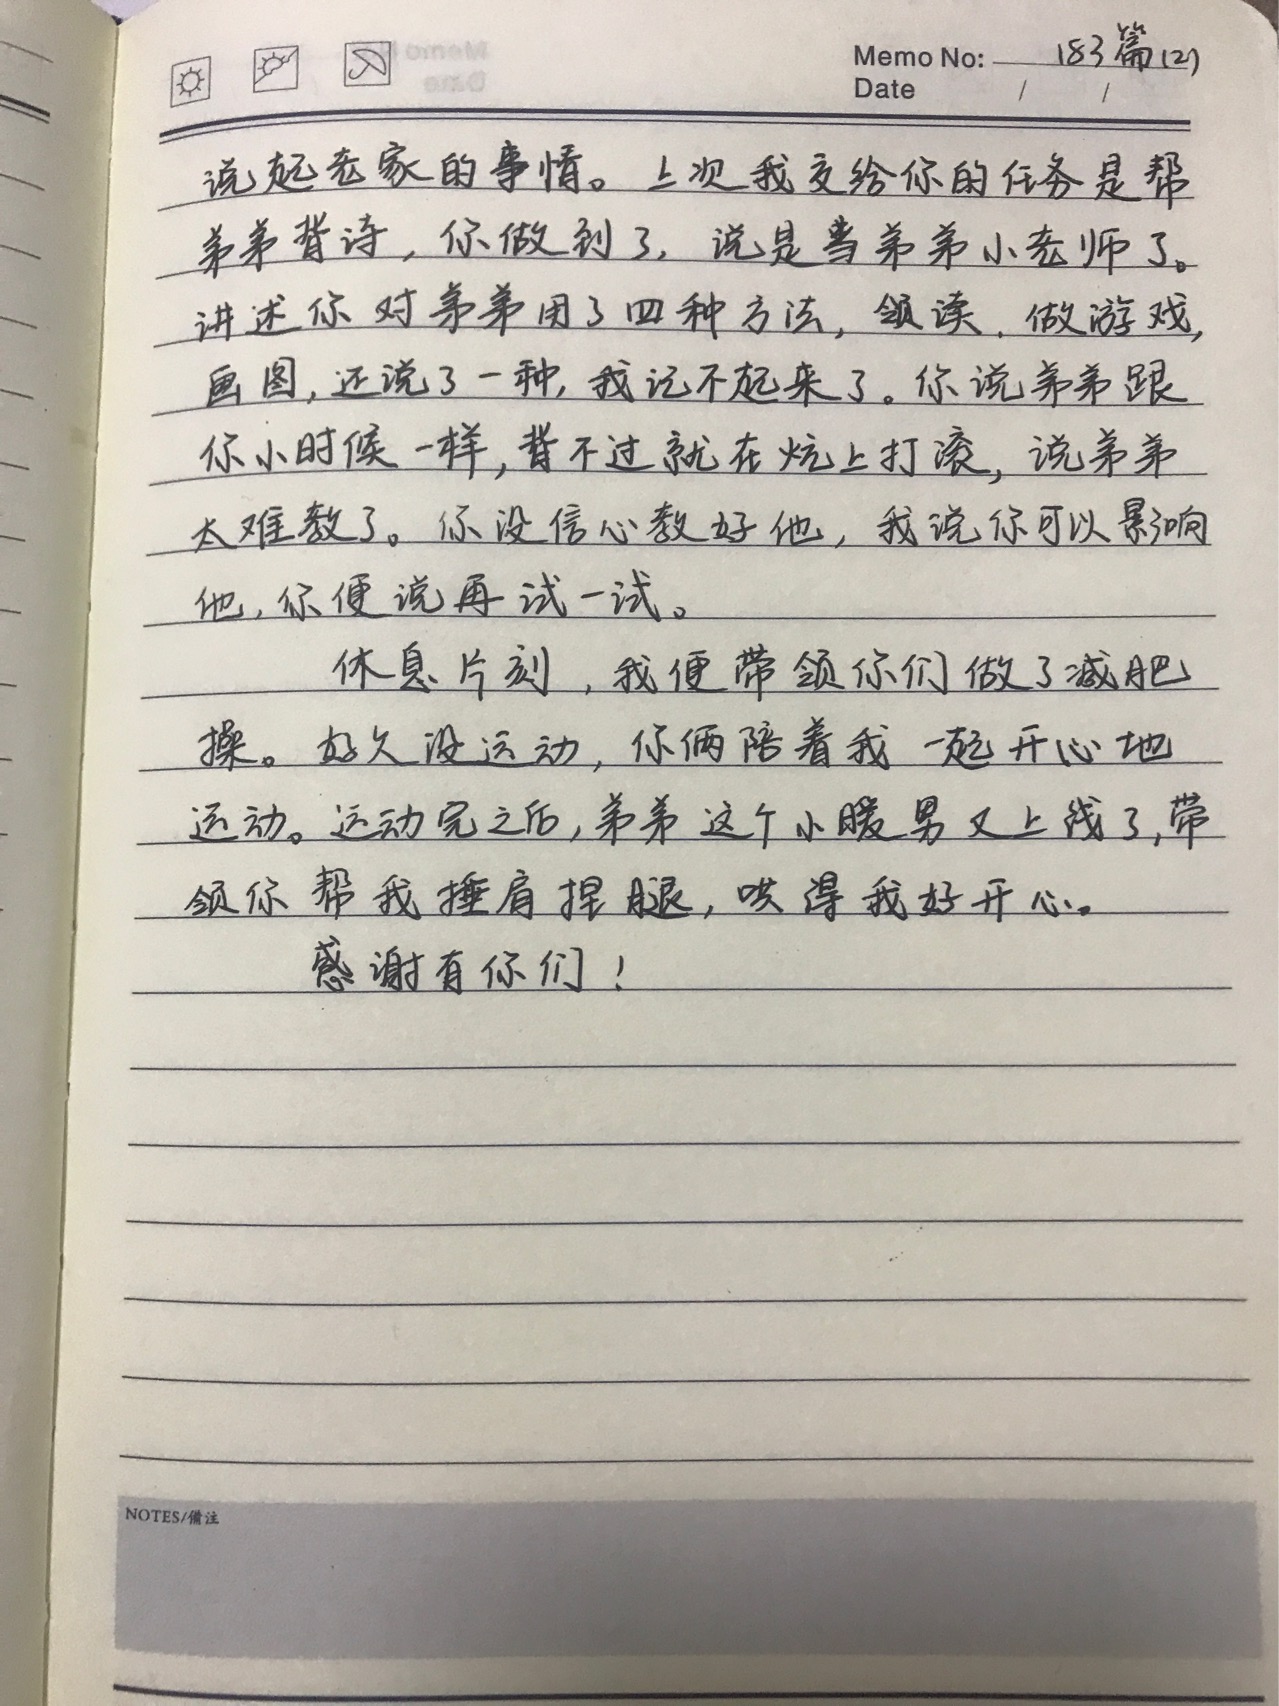 Memo No: 183篇(2)
Date / /
说起老家的事情。上次我交给你的任务是帮
弟弟背诗，你做到了，说是当弟弟小老师了。
讲述你对弟弟用了四种方法，领读、做游戏，
画图，还说了一种，我记不起来了。你说弟弟跟
你小时候一样，背不过就在炕上打滚，说弟弟
太难教了。你没信心教好他，我说你可以影响
他，你便说再试一试。
休息片刻，我便带领你们做了减肥
操。好久没运动，你俩陪着我一起开心地
运动。运动完之后，弟弟这个小暖男又上线了，带
领你帮我捶肩捏腿，哄得我好开心。
感谢有你们！
NOTES/備注